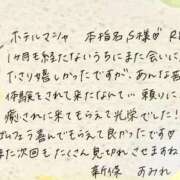 ホテルマシャ 本指名S様♡
1ヶ月も経たないうちにまた会いに
ひさり嬉しかったですが、あんな
体験をされて来たなんて…頼りに
癒されに来てもらえて光栄でした!
ぜんぶう喜んでもらえて良かったです♡
また次回もたくさん見切れさせますね
新保 すみれ